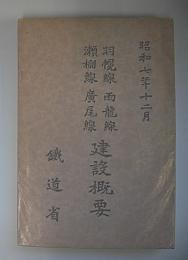 昭和七年十二月
羽幌線 雨龍線
瀬棚線 廣尾線
建設概要
鐵道省